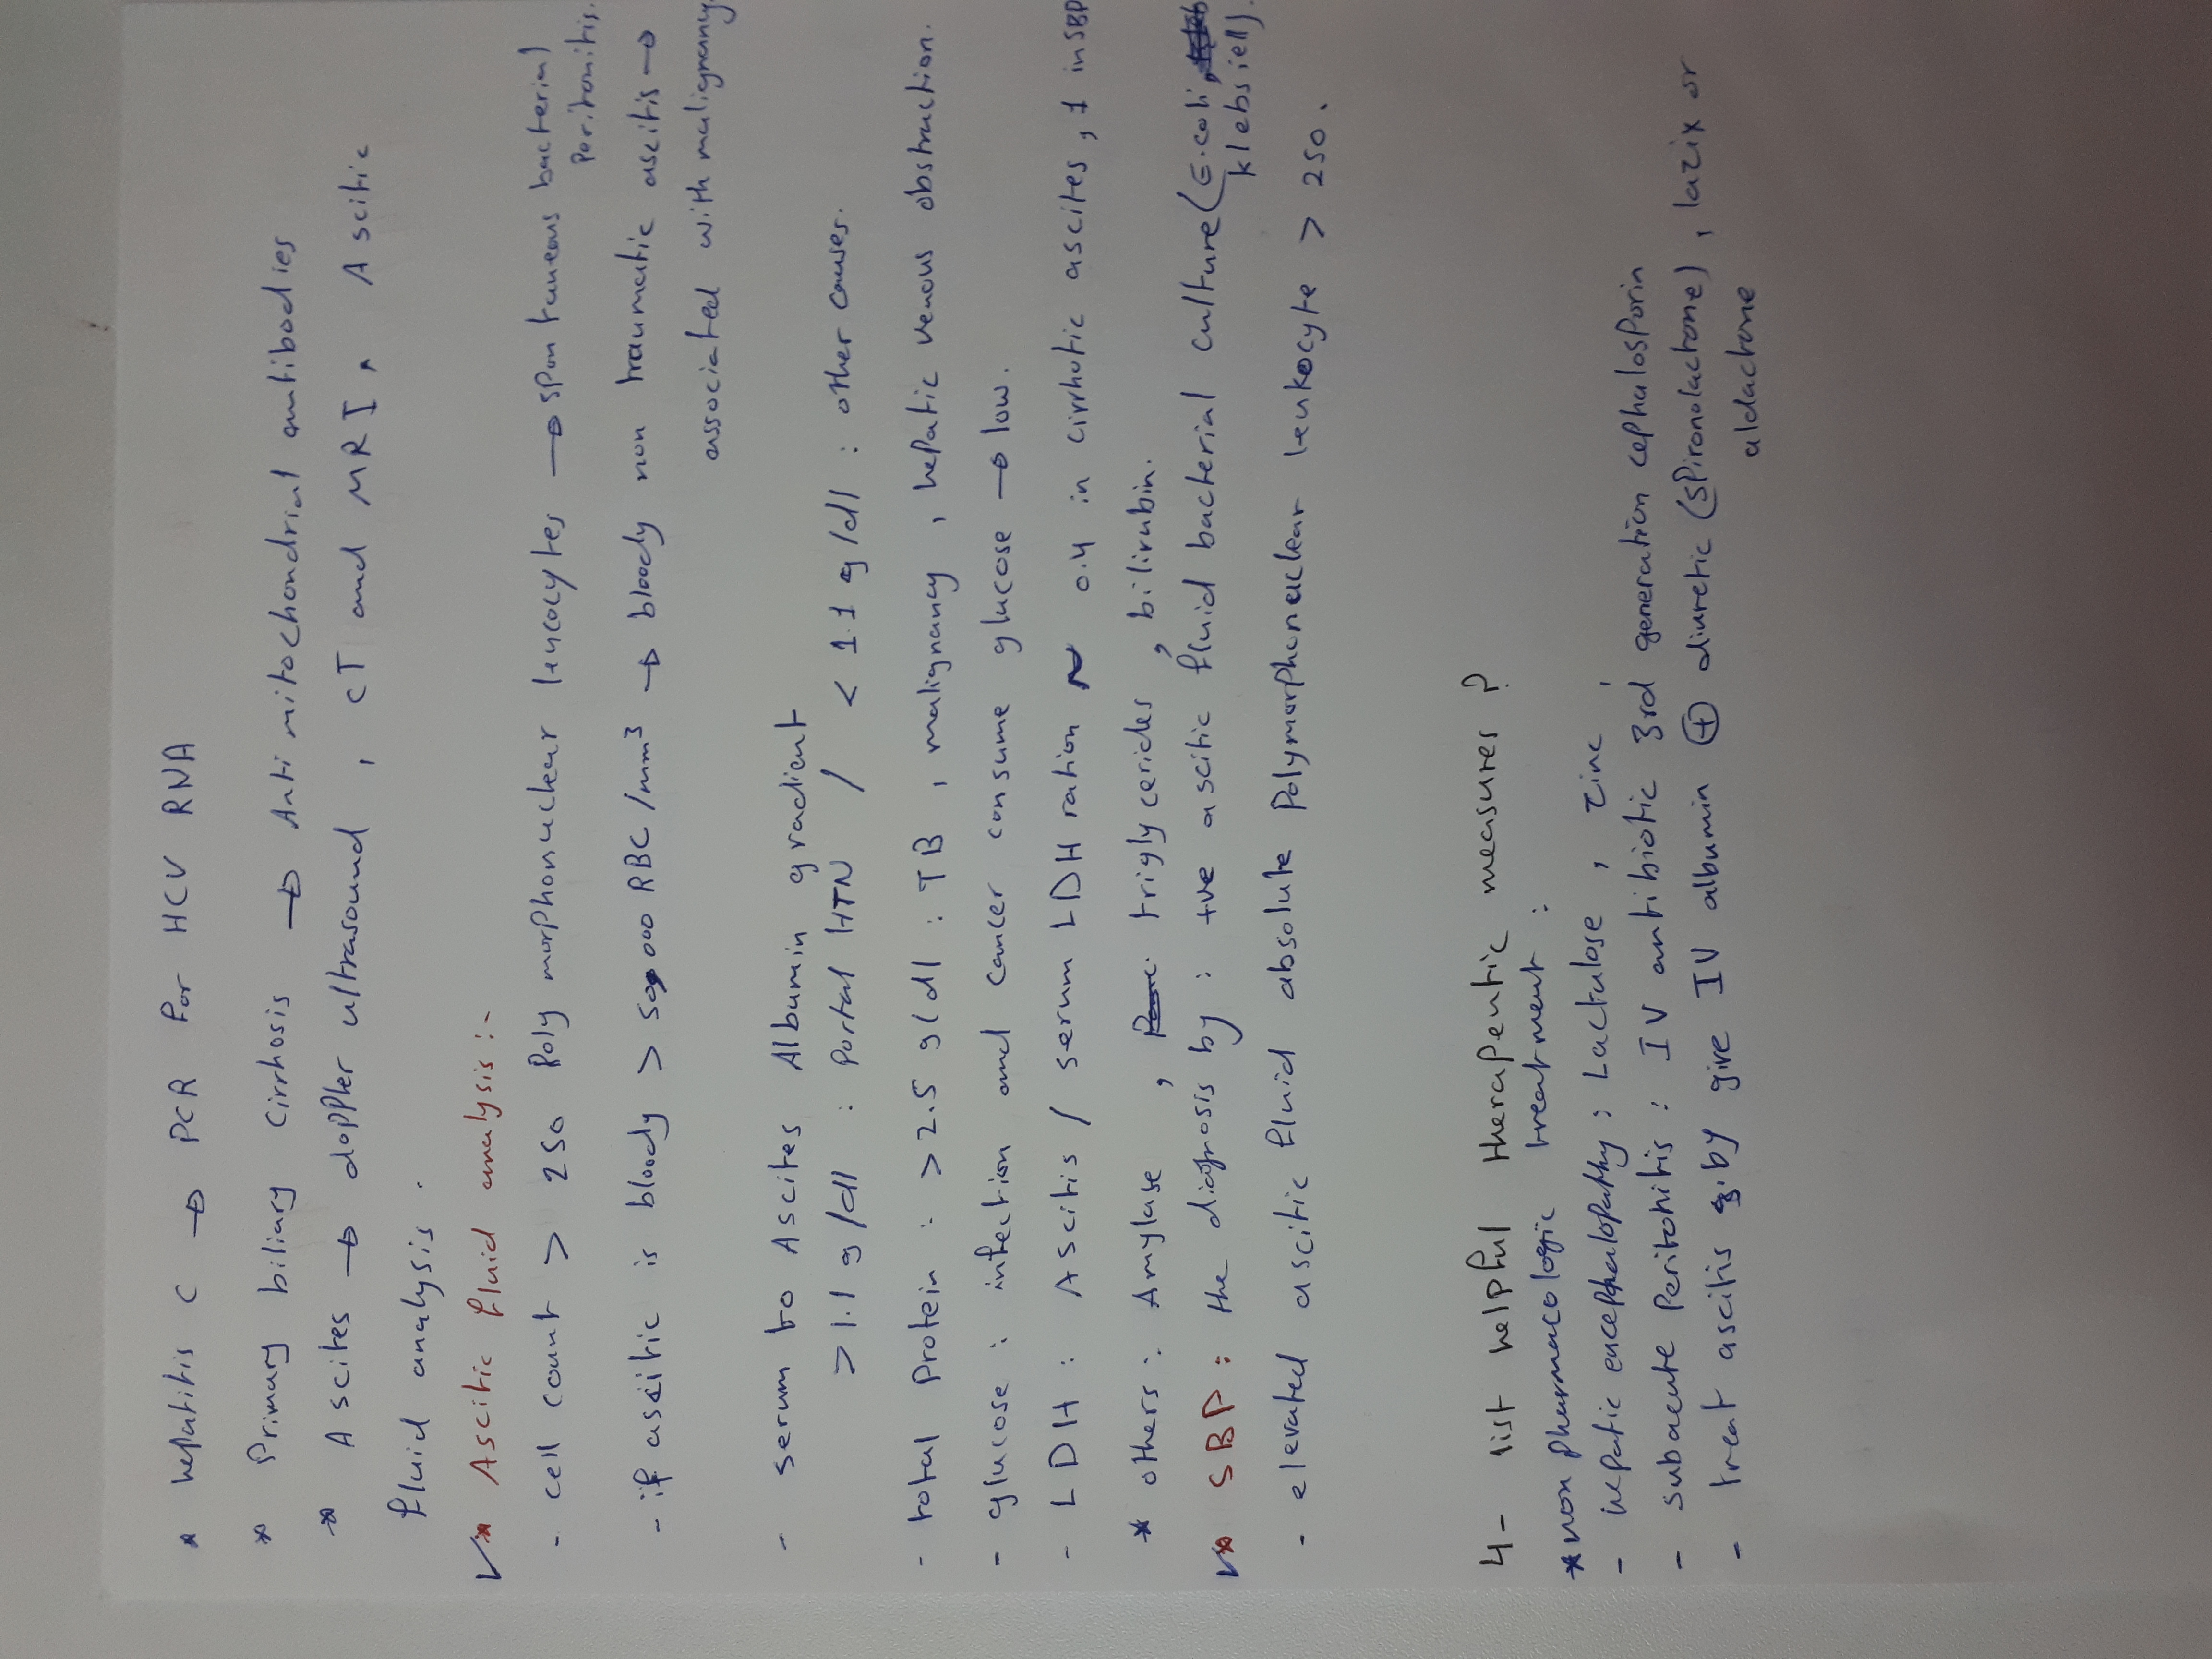 * hepatitis C → PCR For HCV RNA
* Primary biliary cirrhosis → Anti mitochondrial antibodies
* Ascites → doppler ultrasound, CT and MRI, Ascitic
fluid analysis.
* Ascitic fluid analysis :-
- cell count > 250 Poly morphonuclear leucocytes → spontaneous bacterial
Peritonitis.
- if ascitic is bloody > 50,000 RBC/mm³ → bloody non traumatic ascitis →
associated with malignancy.
- serum to Ascites Albumin gradient
> 1.1 g/dl : Portal HTN / < 1.1 g/dl : other causes.
- total Protein : > 2.5 g/dl : TB, malignancy, hepatic venous obstruction.
- glucose : infection and cancer consume glucose → low.
- LDH : Ascitis / serum LDH ration ~ 0.4 in cirrhotic ascites, 1 in SBP
* others : Amylase, triglycerides, bilirubin.
* SBP : the diagnosis by : +ve ascitic fluid bacterial culture (E.coli,
klebsiell).
- elevated ascitic fluid absolute Polymorphonuclear leukocyte > 250.
4- list helpful therapeutic measures ?
* non pharmacologic treatment :
- hepatic encephalopathy : Lactulose, zinc
- subacute Peritonitis : IV antibiotic 3rd generation cephalosporin
- treat ascitis by give IV albumin ⊕ diuretic (spironolactone), lazix or
aldactone